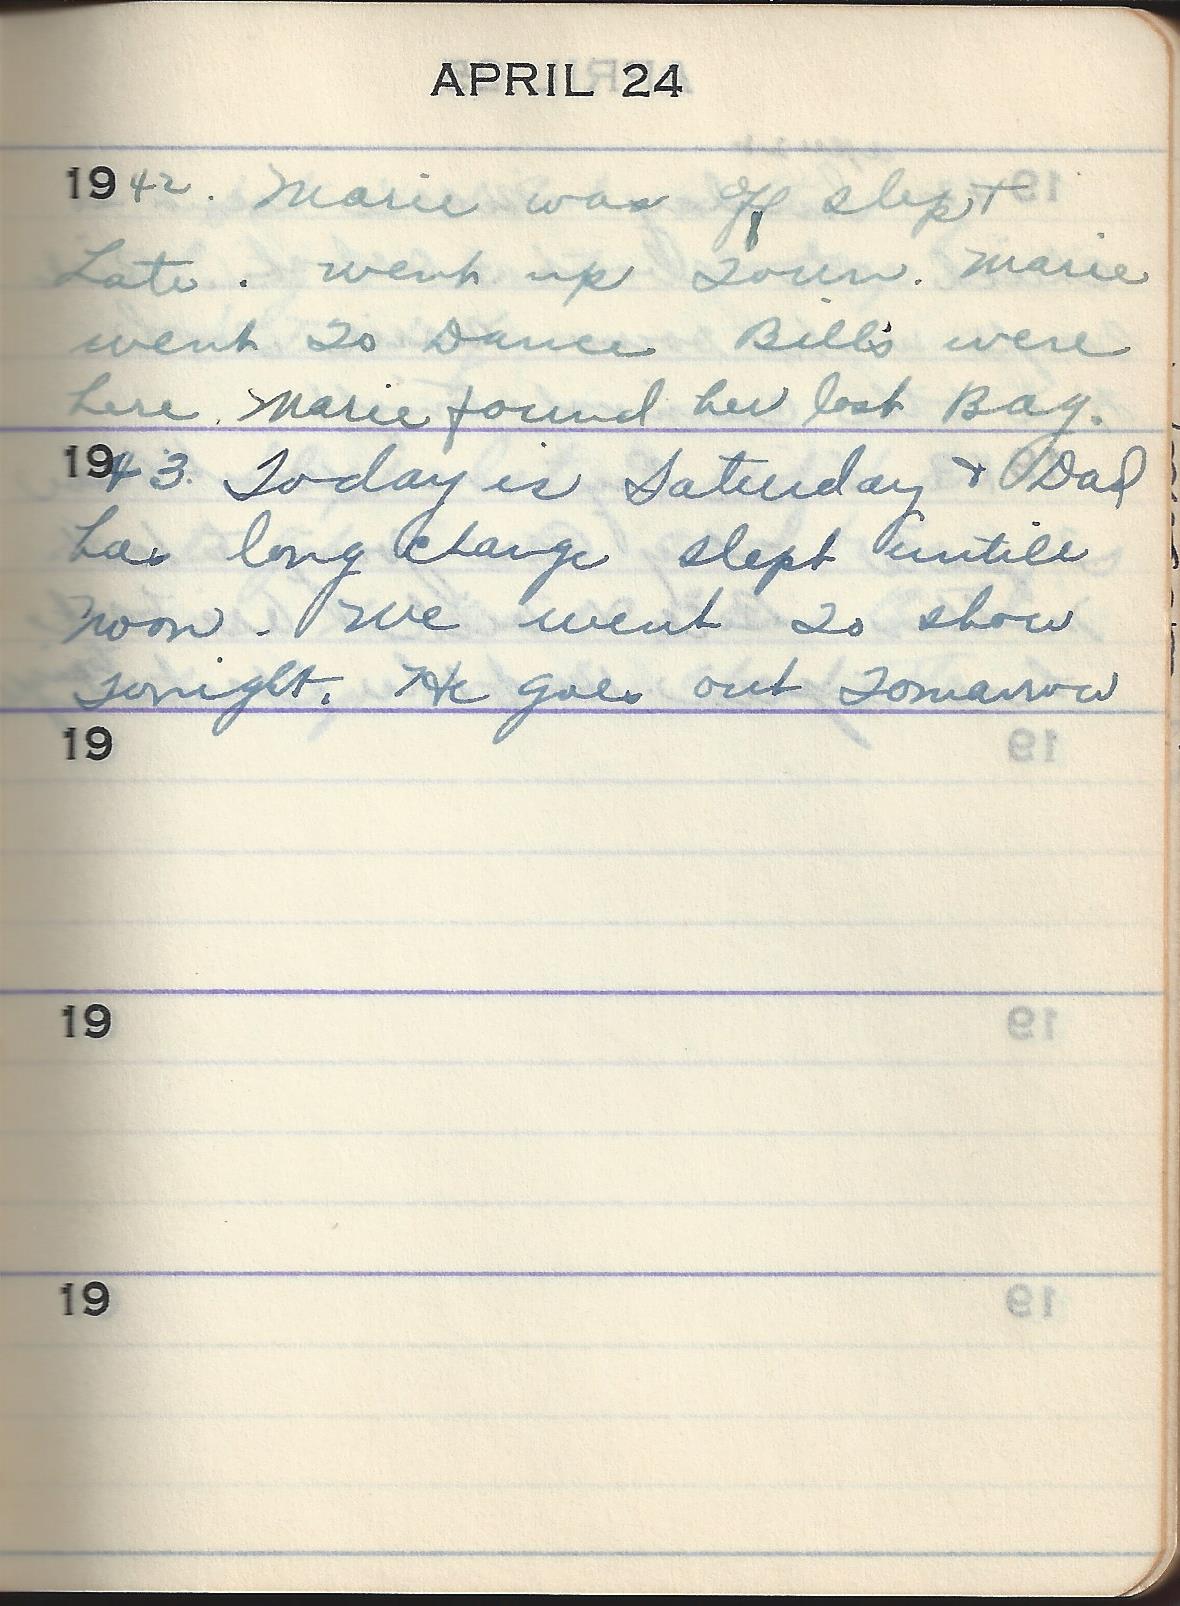 APRIL 24
1942. Marie was off slept
Late. went up Town. Marie
went To Dance Bill's were
here. Marie found her lost Bag.
1943. Today is Saturday + Dad
has long change slept untill
noon. We went To show
Tonight. He goes out Tomarrow
19
19
19